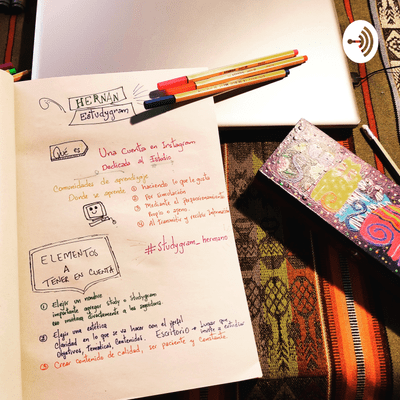 HERNÁN
Estudygram
Qué es
Una Cuenta en Instagram
Dedicada al Estudio
Comunidades de aprendizaje
Donde se aprende
① haciendo lo que le gusta
② Por simulación
③ Mediante el
Propio o ajeno.
④ Al transmitir y recibir información
#Studygram_hernano
ELEMENTOS
A
TENER EN CUENTA
① Elegir un nombre
importante agregar study o studygram
directamente a los seguidores
② Elegir una estética
Claridad en lo que se va hacer con el perfil
Objetivos, Tematicas, Contenidos. Escritorio → Lugar que invite a estudiar
③ Crear contenido de calidad, ser paciente y constante